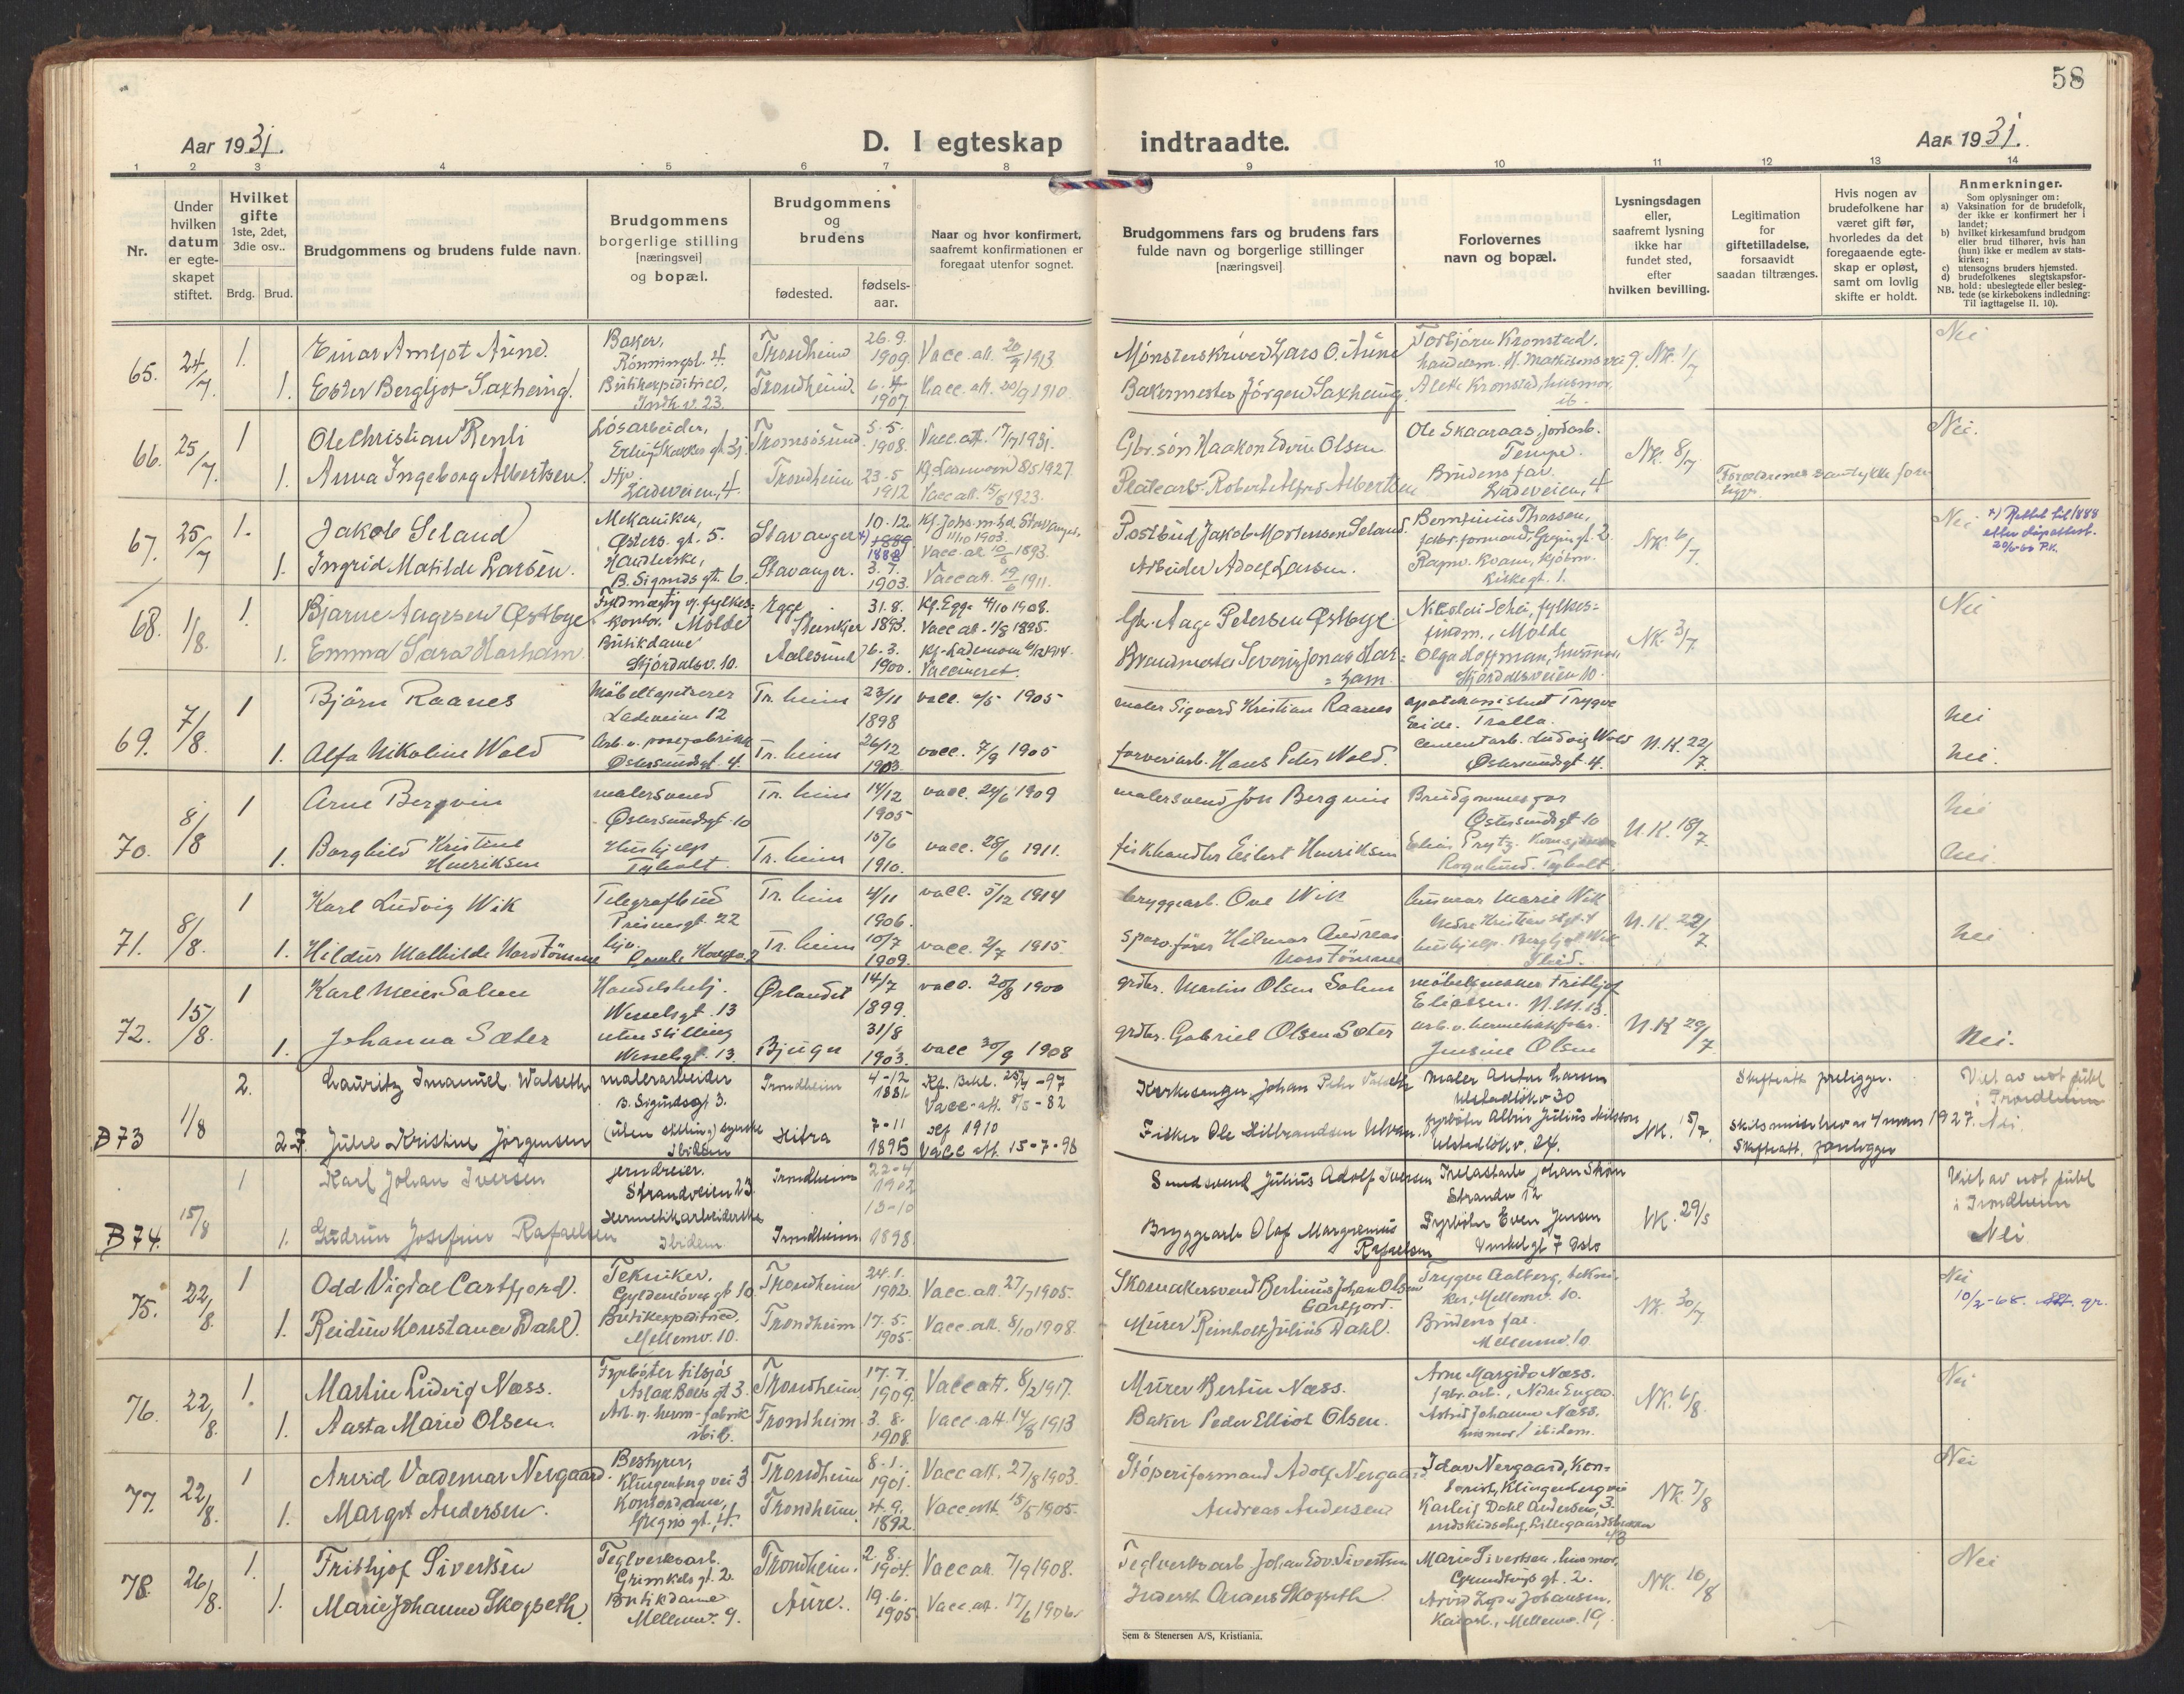 58
Aar 1931.
D. I egteskap indtraadte.
Aar 1931.
1 2 3 4 5 6 7 8 9 10 11 12 13 14
Nr.
Under hvilken datum er egteskapet stiftet.
Hvilket gifte 1ste, 2det, 3die osv..
Brdg. Brud.
Brudgommens og brudens fulde navn.
Brudgommens borgerlige stilling [næringsvei] og bopæl.
Brudgommens og brudens
fødested.
fødselsaar.
Naar og hvor konfirmert, saafremt konfirmationen er foregaat utenfor sognet.
Brudgommens fars og brudens fars fulde navn og borgerlige stillinger [næringsvei]
Forlovernes navn og bopæl.
Lysningsdagen eller, saafremt lysning ikke har fundet sted, efter hvilken bevilling.
Legitimation for giftetilladelse, forsaavidt saadan tiltrænges.
Hvis nogen av brudefolkene har været gift før, hvorledes da det foregaaende egteskap er opløst, samt om lovlig skifte er holdt.
Anmerkninger.
Som oplysninger om:
a) Vaksination for de brudefolk, der ikke er konfirmert her i landet;
b) hvilket kirkesamfund brudgom eller brud tilhører, hvis han (hun) ikke er medlem av statskirken;
c) utensogns bruders hjemsted.
d) brudefolkenes slegtskapsforhold: ubeslegtede eller beslegtede (se kirkebokens indledning:
NB. Til iagttagelse II, 10).
65. 24/7. 1. Einar Amljot Aune. Baker, Rönningsl. 4. Trondheim 26.9. 1909 Vacc. att. 20/9 1913. Mønsterskriver Lars O. Aune Torbjörn Kronstad, NK. 1/7 Nei
1. Ester Bergljot Saxhaug. Butikexpeditrice, Indh.v. 23. Trondheim 6. 1907 Vacc. att. 20/9 1910. Bakermester Jörgen Saxhaug. Alette Kronstad, husmor. ib.
66. 25/7. 1 Ole Christian Renli Lösarbeider, Erling Skakkes gt. Tromsösund 5.5. 1908. Vacc. att. 17/7 1931. Gbr. sön Haakon Edvin Olsen Ole Skaaraas, jordarb. Tempe. NK. 8/7 Nei.
1. Anna Ingeborg Albertsen. Hjv. Ladeveien, 4. Trondheim 23.5 1912 Kf. Lademoen 8/5 1927. Vacc att. 15/8 1923. Platearb. Robert Alfred Albertsen Brudens far. Ladeveien, 4 Foreldrenes samtykke forel.
67. 25/7 1. Jakob Seland Mekaniker, Østers. gt. 5. Stavanger 10.12. 1889 1888 Kf. Johs. m. hd. Stavanger, 11/10 1903. Vacc. att 10/6 1893. Postbud Jakob Mortensen Seland. Berntinius Thorsen, fabr. formand, NK. 6/7. Nei x) Rettet til 1888 etter dåpsattest.
1. Ingrid Matilde Larsen. Handlerske, B. Sigurds gt. 6. Stavanger. 3.7. 1903. Vacc att. 19/6 1911. Arbeider Adolf Larsen. Ragnv. Kvam, kjöbm. Kirkegt. 1.
68. 1/8. 1. Bjarne Aagesen Østbye Fuldmægtig v. fylkeskontor. Molde Egge Steinkjer 31.8. 1893. Kf. Egge 4/10 1908. Vacc att. 1/8 1895. Gbr. Aage Petersen Østbye. Nicolai Schei, fylkesfuldm., Molde NK. 3/7. Nei
1. Emma Sara Harham Butikdame Stjördalsv. 10. Aalesund 6.3. 1900. Kf. Lademoen 6/12 1914. Vaccineret. Brandmester Severin Jonas Harham. Olga Hoffman, husmor, Stjördalsveien 10.
69. 7/8. 1 Björn Raanes Möbeltapetserer Ladeveien 12 Tr.heim 23/11 1898 vacc. 9/5 1905 maler Sigvard Kristian Raanes apotekvisitat Trygve Eide. Tralla. Nei
1. Alfa Nikoline Wold Arb. v. posefabrikk Østersundsgt. 4. Tr.heim 26/12 1903. vacc. 7/9 1905 farveriarb. Hans Peter Wold. Cementarb. Ludvig Wold Østersundsgt. 4. N.K. 22/7. Nei.
70. 8/8 1 Arne Bergvin malersvend Østersundsgt. 10 Tr.heim 14/12 1905 vacc. 24/6 1909 malersvend Jon Bergvin Brudgommens far Østersundsgt. 10 N.K. 18/7 Nei
1. Borghild Kristine Henriksen Hushjelp Tyholt Tr.heim 15/6 1910. vacc. 28/6 1911. fiskhandler Eilert Henriksen Elias Prytz. Rognlund. Tyholt. Nei.
71. 8/8. 1 Karl Ludvig Wik Telegrafbud Prinsensgt. 22 Tr.heim 4/11 1906. vacc. 5/12 1914 bryggearb. Ove Wik husmor Marie Wik Nedre Kristianstgt. 1 N.K. 22/7
1. Hildur Mathilde Nordtömme hjv. Gamle Kongev. 2 Tr.heim 10/7 1909. vacc. 2/7 1915. sporv.förer Hilmar Andreas Nordtömme hushjelp. Bergljot Wik Ibid. Nei
72. 15/8. 1 Karl Meier Solem Handelsbetj. Wesselsgt. 13 Ørlandet 14/7 1899. vacc. 20/8 1900 grdbr. Martin Olsen Solem möbelsnekker Frithjof Eliassen. N.M. 13.
1. Johanna Sæter uten stilling Wesselsgt. 13. Bjugn 31/8 1903. vacc 30/9 1908 grdbr. Gabriel Olsen Sæter arb. v. hermetikkfabr. Jensine Olsen N.K 29/7 Nei.
B 73 1/8 2. Lauritz Imanuel Walseth malerarbeider B. Sigurdsgt 3. Trondheim 4-12 1881 Kf. Bakl. 25/4 -97 Vacc.att. 8/5 - 82 Kirkesanger Johan Peter Valseth Maler Anton Larsen Ulstadlökv 30 Skifteatt. foreligger. Viet av not. publ i Trondheim
2 Julie Kristine Jörgensen (uten stilling) syerske Ibidem Hitra 7-11 1895 Kf 1910 Vacc att. 15-7-96 Fisker Ole Hilbrandsen Ulvan. fyrböter Albin Julius Nilsson Ulstadlökv. 24. NK. 15/7. Skilsmisse hev. 1927. Skifteatt. foreligger Nei.
B 74. 15/8 1 Karl Johan Iversen jerndreier. Strandveien 23. Trondheim 22-4 1902 Smedsvend Julius Adolf Iversen Trelastarb Johan Skjön Strandv 12 Viet av not publ i Trondheim
1. Gudrun Josefine Rafaelsen Hermetikarbeiderske Ibidem Trondheim 13-10 1898. Bryggearb Olaf Margenius Rafaelsen Fyrböter Even Jensen Vinkelgt 7 Oslo NK. 29/5 Nei
75. 22/8. 1 Odd Vigdal Carlfjord. Tekniker. Gyldenlöves gt 10. Trondheim 24.1. 1902. Vacc. att. 27/7 1905. Skomakersvend Bertinus Johan Olsen Carlfjord. Trygve Aalberg, tekniker, Mellemv. 10. NK. 30/7 Nei 10/2-68. Att. gr.
1. Reidun Konstance Dahl. Butikexpeditrice, Mellemv. 10. Trondheim 17.5. 1905. Vacc. att. 8/10 1908. Murer Reinholt Julius Dahl. Brudens far. Mellemv. 10
76. 22/8. 1. Martin Ludvig Næss. Fyrböter tilsjös Aslak Bolts gt 3. Trondheim 17.7. 1909. Vacc att. 8/2 1917. Murer Bertin Næss. Arne Margido Næss. fabr. arb., Nedre Enggt. NK. 6/8. Nei
1. Aasta Marie Olsen. Arb. v. herm-fabrik ibid. Trondheim. 3.8. 1908. Vacc. att. 14/8 1913 Baker Peder Elliot Olsen. Astrid Johanne Næss, husmor, ibidem.
77. 22/8. 1 Arvid Valdemar Nergaard. Bestyrer, Klingenberg vei 3. Trondheim 8.1. 1901. Vacc att. 27/8 1903. Stöperiformand Adolf Nergaard. Idar Nergaard, kontorist, Klingenberg vei 3. NK. 7/8 Nei
1. Margit Andersen. Kontordame, Gregus gt. 4. Trondheim. 4.9. 1892. Vacc att. 15/5 1905. Andreas Andersen Karleif Dahl Andersen, Lillegaardsbakken
78. 26/8. 1. Frithjof Sivertsen Teglverksarb. Grimkels gt. 2. Trondheim. 2.8. 1904. Vacc att. 7/9 1908. Teglverksarb. Johan Edv. Sivertsen Marie Sivertsen, husmor, Grundtvigs gt. 2. NK. 10/8 Nei
1. Marie Johanne Skogseth. Butikdame Mellemv. 9. Aure. 19.6. 1905. Vacc. att. 17/6 1906. Inderst Anders Skogseth Arvid Johansen, Kaiarb., Mellemv. 19.
Sem & Stenersen A/S, Kristiania.